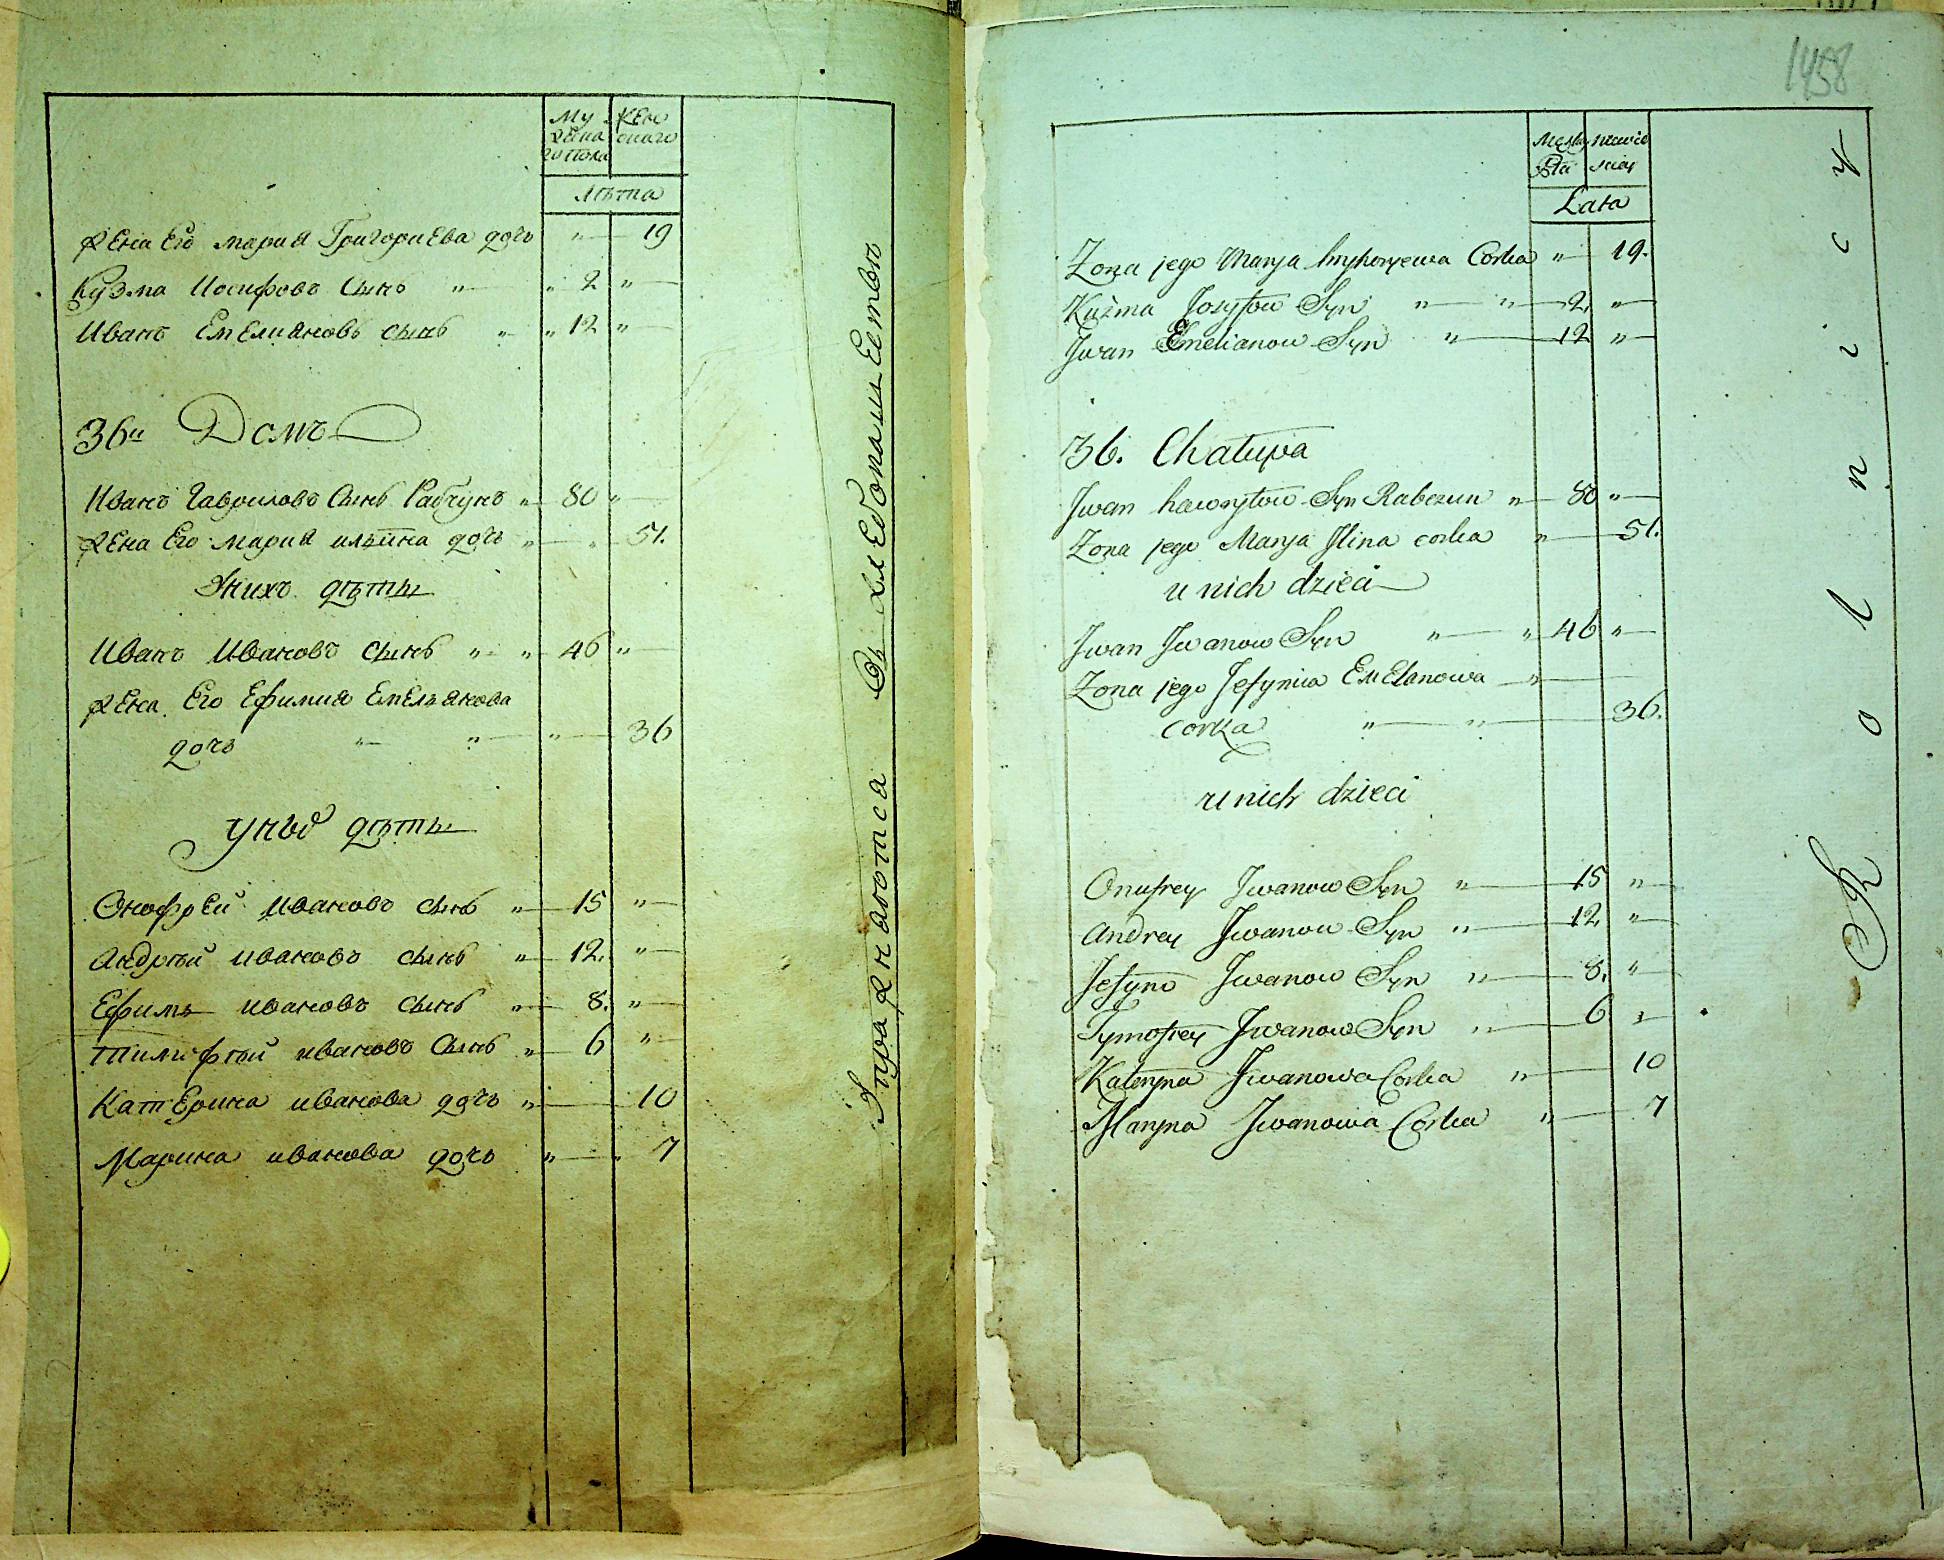 Му Жен
жеска скаго
го пола
Лѣта
Жена Его Мариа Григориева дочь " 19
Кузма Иосифовъ Сынъ " " 2 "
Иванъ Емелиановъ сынъ " " 12 "
36й Домъ
Иванъ Гавриловъ Сынъ Рабчунъ " 80 "
Жена Его Мариа ильина дочь " " 51.
У нихъ дѣти
Иванъ Ивановъ сынъ " " 46 "
Жена Его Ефимиа Емельянова
дочь " " " 36
у нихъ дѣти
Онофрей Ивановъ сынъ " 15 "
Андрѣй ивановъ сынъ " 12. "
Ефимъ ивановъ сынъ " 8. "
Тимофѣй ивановъ Сынъ " 6 "
Катерина иванова дочь " 10
Марина иванова дочь " " 7
Упражняютса Въ хлебопашестве
1458
Męska niewie
Płci skiey
Lata
Zona jego Marya Hryhoryewa Corka " 19.
Kuźma Jozyfow Syn " " 2. "
Jwan Emelianow Syn " 12 "
36. Chałupa
Jwan hawryłow Syn Rabczun " 80 "
Zona jego Marya Jlina corka " 51.
u nich dzieci
Jwan Jwanow Syn " " 46 "
Zona jego Jefymia Emelanowa "
corka " " 36.
u nich dzieci
Onufrey Jwanow Syn " 15 "
Andrey Jwanow Syn " 12. "
Jefym Jwanow Syn " 8. "
Tymofiey Jwanow Syn " 6 "
Kateryna Jwanowa Corka " 10
Maryna Jwanowa Corka " 7
Rolnicy